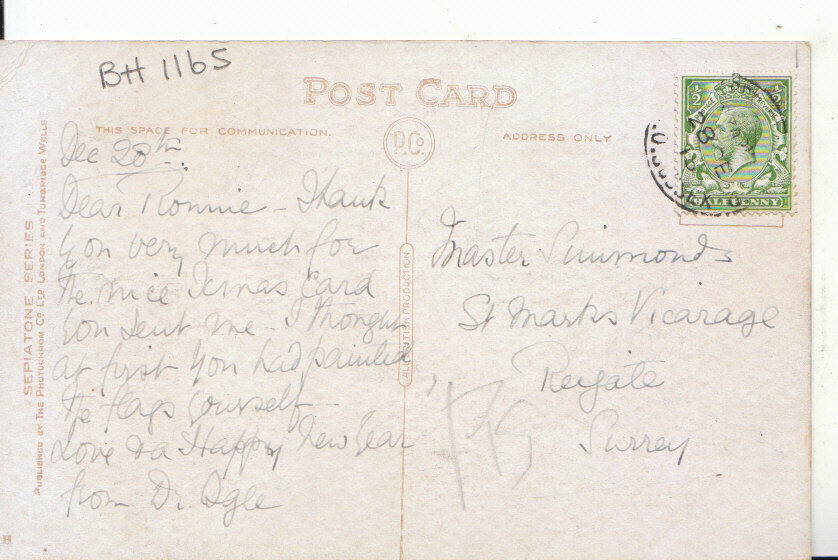 BH 1165
POST CARD
THIS SPACE FOR COMMUNICATION.
P.Co.
ADDRESS ONLY
Dec 28th
Dear Ronnie - Thank
you very much for
the nice Xmas Card
you sent me - I thought
at first you had painted
the flags yourself -
Love & a Happy New Year
from Dr.
Master Simmonds
St Marks Vicarage
Reigate
Surrey
ALL BRITISH PRODUCTION
SEPIATONE SERIES
PUBLISHED BY THE PHOTOCHROM CO. LTD LONDON AND TUNBRIDGE WELLS
1/2 1/2
HALFPENNY
28 DE
H